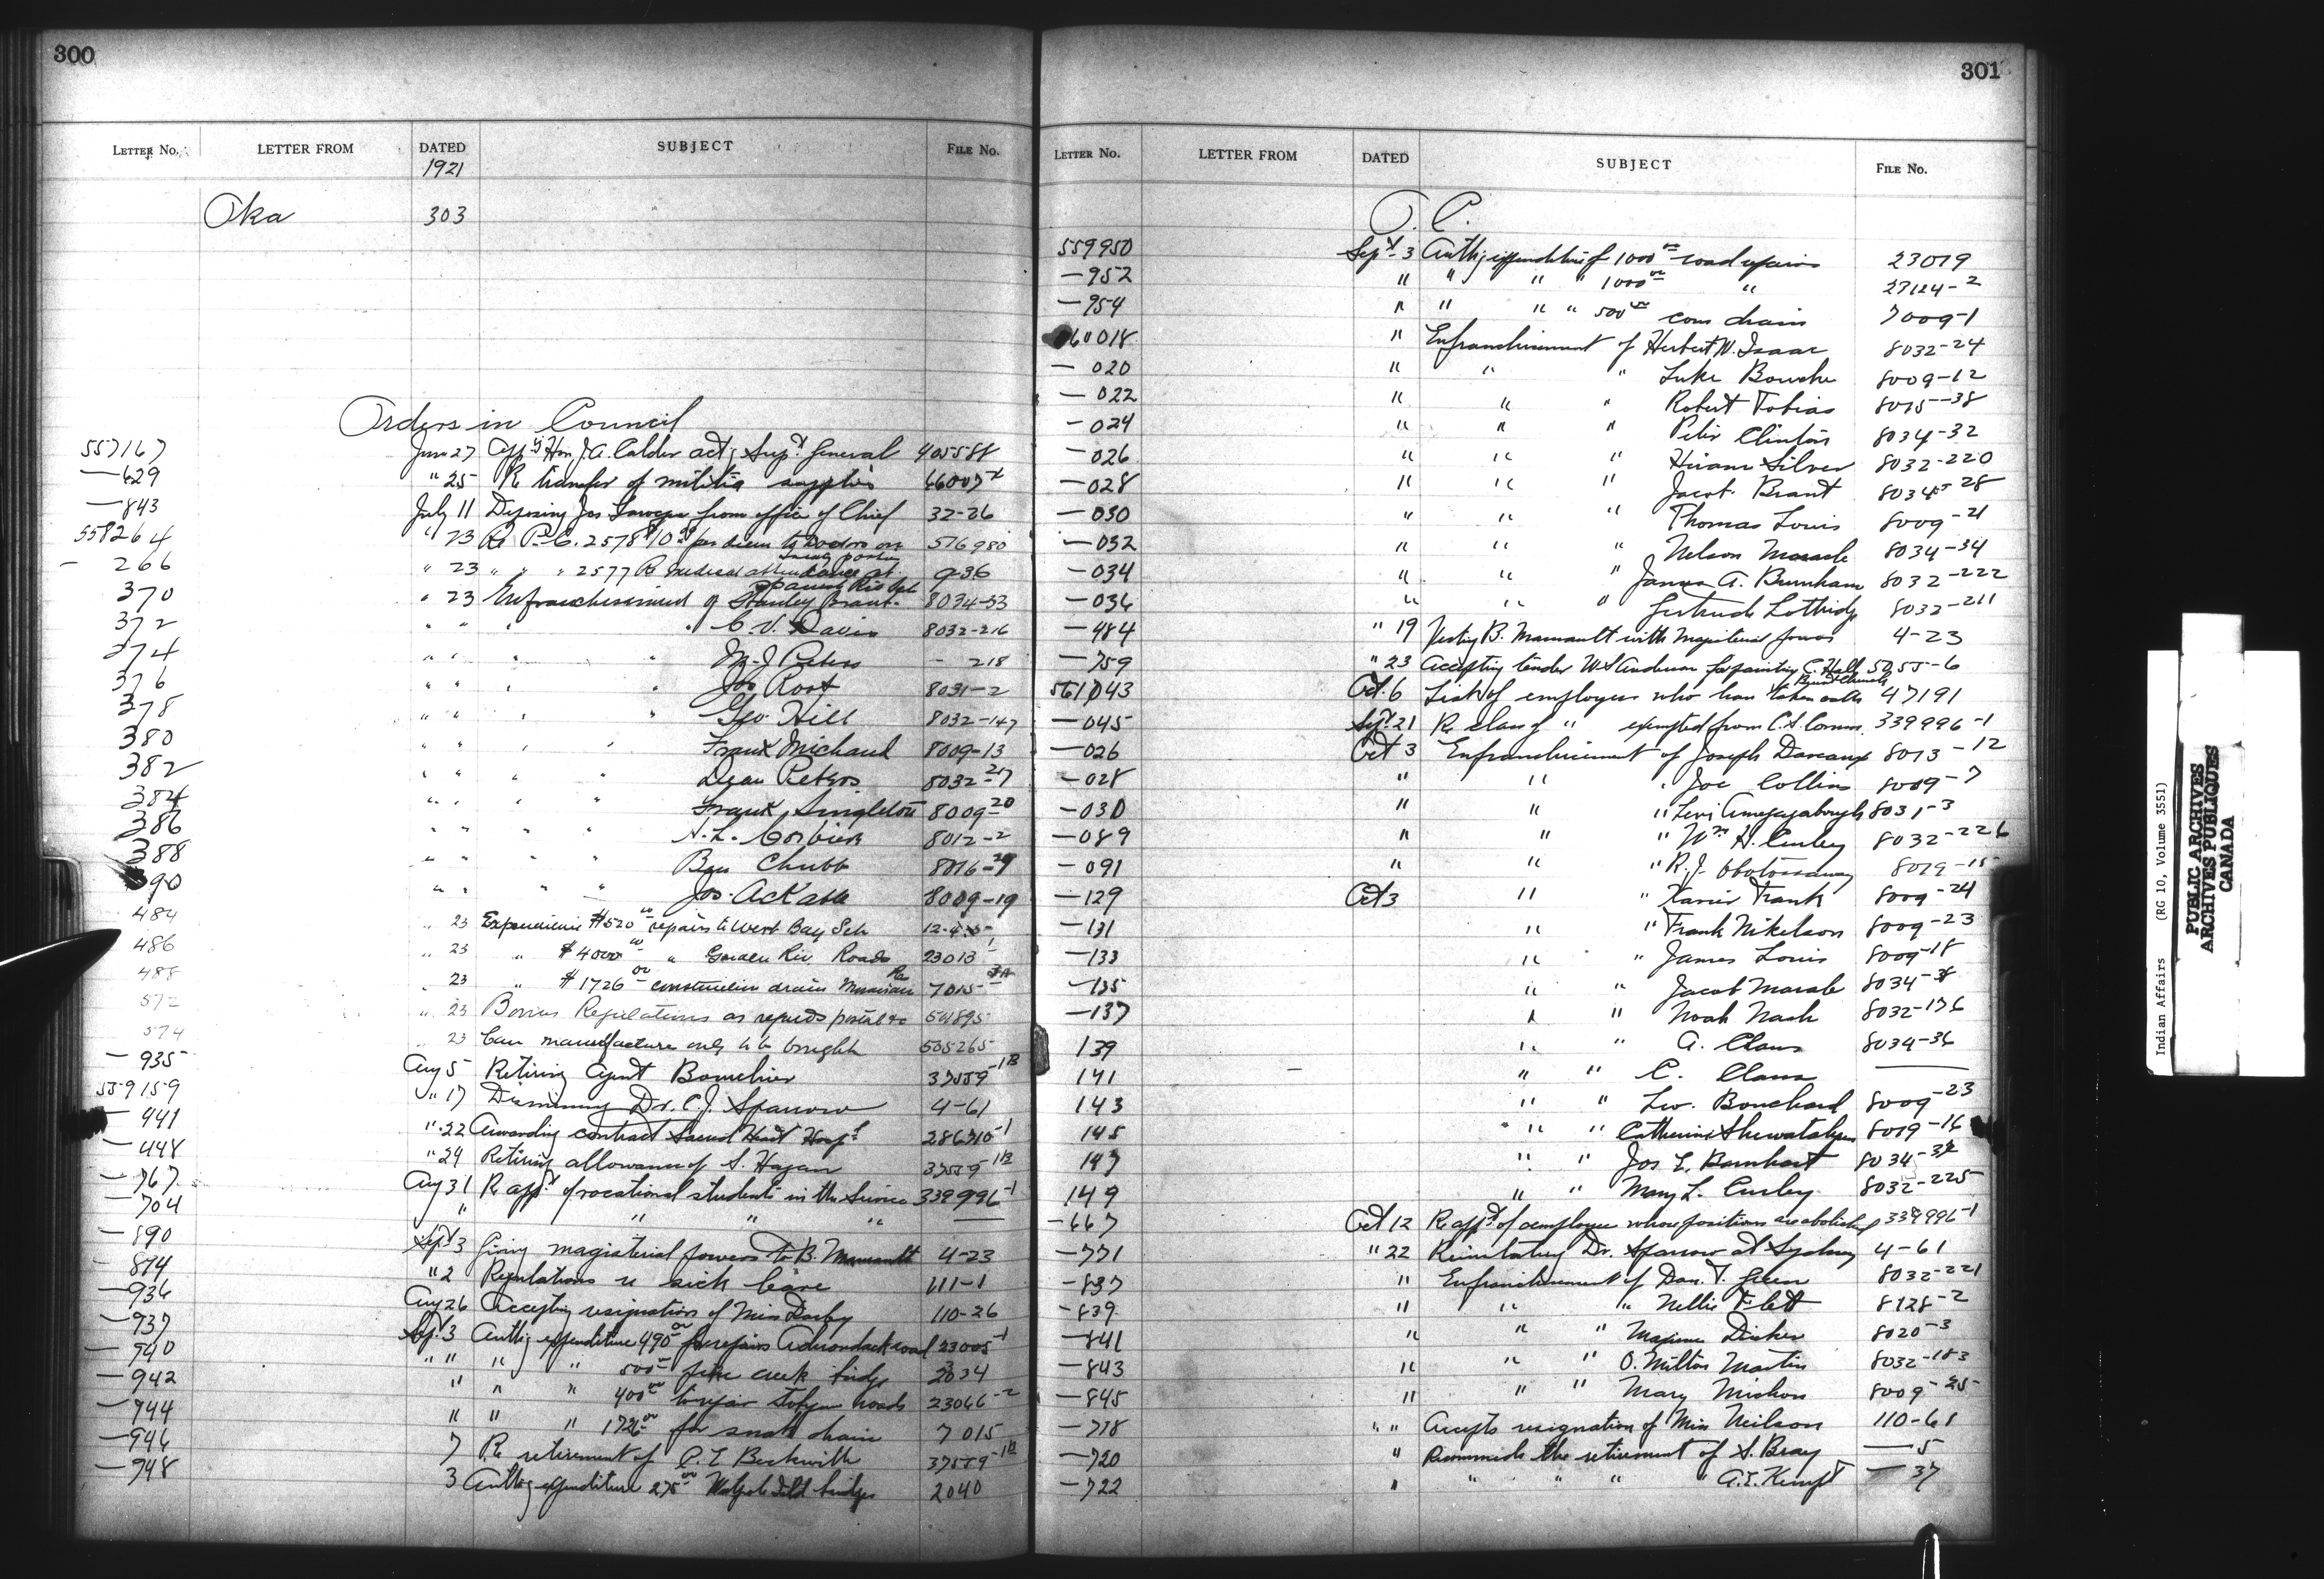 300
LETTER No. LETTER FROM DATED SUBJECT FILE No.
1921
Oka 303
Orders in Council
557167 June 27 Hon. J.A. Calder act; Supt General 405588
—629 " 25 Re transfer of militia supplies
—843 July 11 Deposing Jos from office of Chief 32-26
558264 " 23 Re P.C. 2578 $10 per diem to Doctors on 576980
— 266 " 23 " " " 2577 Re medical attendance at 936
370 " 23 Enfranchisement of Stanley Brant 8034-33
372 " " " " C.V. Davis 8032-216
374 " " " " M.J. Peters - 218
376 " " " " Jos Root 8031-2
378 " " " " Geo. Hill 8032-147
380 " " " " Frank Michaud 8009-13
382 " " " " Peters 8032-217
384 " " " " Frank Singleton 8009-20
386 " " " " Corbiere 8012-2
388 " " " " Ben Chubb
390 " " " " Jos. 8009-19
484 " 23 $520 repairs to West Bay Sch
486 " 23 " $4000 " Garden Riv. Roads 23013-1
488 " 23 " $1726 construction drain 7015
572 " 23 Bonus Regulations as regards postal &c
574 " 23 Can manufacture only to be bought 505265
— 935 Aug 5 Retiring Agent 37559-1B
559159 " 17 Dismissing Dr. C.J. Sparrow 4-61
— 441 " 22 Awarding contract Sacred Heart Hosptl
— 448 " 24 Retiring allowance of S. Hagan 37559-1B
— 767 Aug 31 Re appt of vocational students in the Service 339996-1
— 704 " " " "
— 890 Sept 3 Giving magisterial powers to B. 4-23
— 874 " 2 Regulations re sick leave 111-1
— 936 Aug 26 Accepting resignation of Miss Darby 110-26
— 937 Sept 3 Authg expenditure 490 for repairs road 23005-1
— 940 " " " " 500 creek bridge
— 942 " " " 400 to repair roads 23066-2
— 944 " " " 1726 for drain 7015
— 946 7 Re retirement of C.E. Beckwith 37559-1B
— 948 3 Authg expenditure 275 Walpole Isld bridges 2040
301
LETTER No. LETTER FROM DATED SUBJECT FILE No.
O. C.
559950 Sept 3 Authg expenditure of 1000 road repairs 23019
—952 " " " " 1000 " 27124-2
—954 " " " " 500 drain 7009-1
60018 " Enfranchisement of Herbert W. Isaac 8032-24
— 020 " " " Luke 8009-12
— 022 " " " Robert Tobias 8015-38
— 024 " " " Peter Clinton 8034-32
— 026 " " " Hiram Silver 8032-220
— 028 " " " Jacob Brant 8034-28
— 030 " " " Thomas Louis 8009-21
— 032 " " " Nelson Maracle 8034-34
— 034 " " " James A. Burnham 8032-222
— 036 " " " Gertrude Lottridge 8032-211
— 484 " 19 Vesting B. with Magisterial powers 4-23
— 759 " 23 Accepting tender W.S. Anderson for painting C. Hall
561043 Oct. 6 List of employees who have taken oaths 47191
— 045 Sept 21 Re class of " exempted from C.S. Comm. 339996-1
— 026 Oct 3 Enfranchisement of Joseph 8013-12
— 028 " " " Joe Collins 8009-7
— 030 " " " Levi 8031-3
— 089 " " " Wm H. Curley 8032-226
— 091 " " " R.J. 8019-15
— 129 Oct 3 " " Xavier Frank 8009-24
— 131 " " Frank Nikelson 8009-23
— 133 " " James Louis 8009-18
— 135 " " Jacob Maracle
— 137 " " Noah Nash 8032-176
139 " " A. Claus 8034-36
141 " " C. Claus
143 " " Bouchard 8009-23
145 " " Catherine 8019-16
147 " " Jos L. Barnhart
149 " " Mary L. Curley 8032-225
— 667 Oct 12 Re appt of employee whose positions are abolished 339996-1
— 771 " 22 Reinstating Dr. Sparrow at Sydney 4-61
— 837 " Enfranchisement of Dan. T. Green 8032-221
— 839 " " " Nellie Flett 8128-2
— 841 " " " 8020-3
— 843 " " " O. Milton Martin 8032-183
— 845 " " " Mary 8009-25
— 718 " " Accepts resignation of Miss Neilson 110-61
— 720 " Recommends the retirement of S. Bray — 5
— 722 " " " " " A.E. Kempt — 37
Indian Affairs (RG 10, Volume 3551)
PUBLIC ARCHIVES
ARCHIVES PUBLIQUES
CANADA